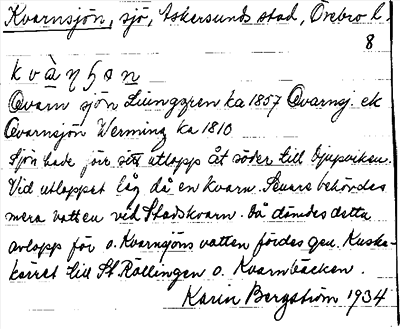 Kvarnsjön, sjö, Askersunds stad, Örebro l.
8
kvàɳʂøn
Qvarn sjön Liunggren ka 1857 Qvarnsj. ek
Qvarnsjön Werming ka 1810
Sjön hade förr sitt utlopp åt söder till Djupviken.
Vid utloppet låg då en kvarn. Senare behövdes
mera vatten vid Stadskvarn. Då dämdes detta
avlopp för o. Kvarnsjöns vatten fördes gen. Kuska-
kärret till St. Röllingen o. Kvarnbäcken.
Karin Bergström 1934